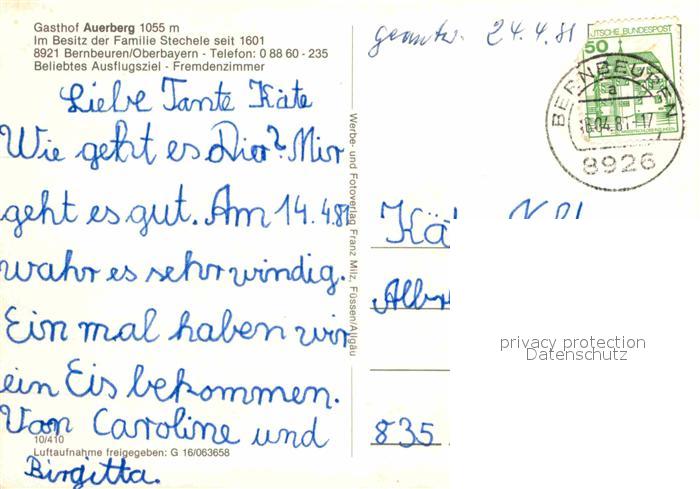 Gasthof Auerberg 1055 m
Im Besitz der Familie Stechele seit 1601
8921 Bernbeuren/Oberbayern - Telefon: 0 88 60 - 235
Beliebtes Ausflugsziel - Fremdenzimmer
Liebe Tante Käte
Wie geht es Dir? Mir
geht es gut. Am 14.4.81
wahr es sehr windig.
Ein mal haben wir
ein Eis bekommen.
Von Caroline und
Birgitta.
10/410
Luftaufnahme freigegeben: G 16/063658
Werbe- und Fotoverlag Franz Milz, Füssen/Allgäu
geantw. 24.4.81
UTSCHE BUNDESPOST
50
BERNBEUREN
a
.04.81-17
8926
Kä
Albr
835
privacy protection
Datenschutz